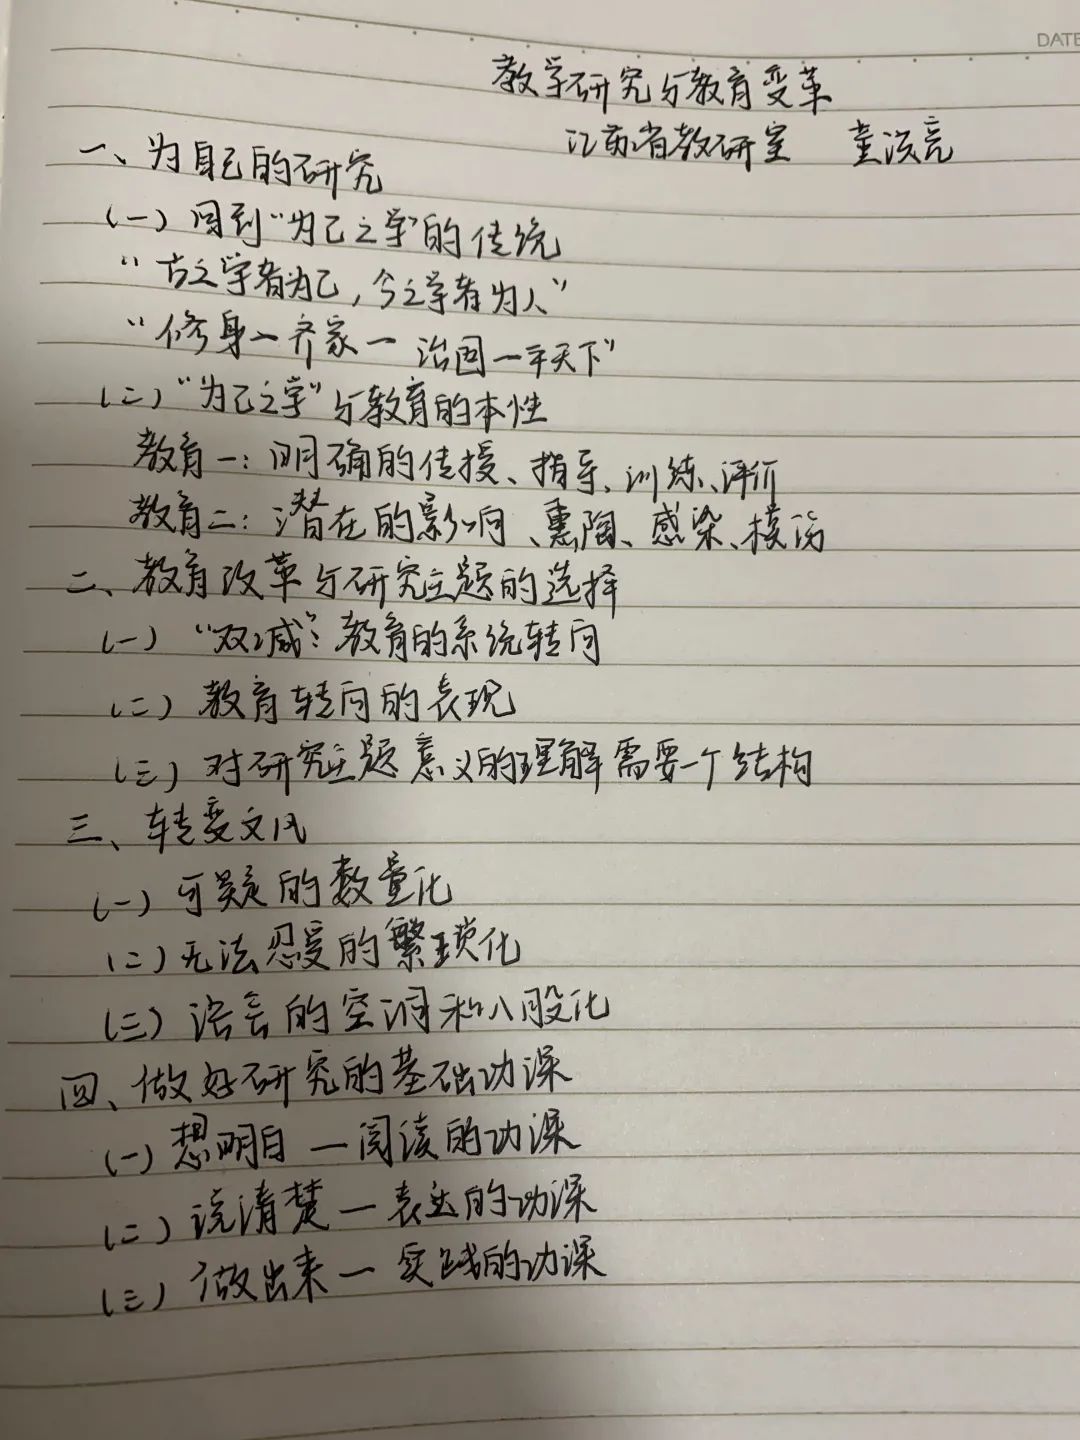 DATE
教学研究与教育变革
江苏省教研室 董洪亮
一、为自己的研究
(一)回到“为己之学”的传统
“古之学者为己,今之学者为人”
“修身—齐家—治国—平天下”
(二)“为己之学”与教育的本性
教育一:明确的传授、指导、训练、评价
教育二:潜在的影响、熏陶、感染、模仿
二、教育改革与研究主题的选择
(一)“双减”:教育的系统转向
(二)教育转向的表现
(三)对研究主题意义的理解需要一个结构
三、转变文风
(一)可疑的数量化
(二)无法忍受的繁琐化
(三)语言的空洞和八股化
四、做好研究的基础功课
(一)想明白—阅读的功课
(二)说清楚—表达的功课
(三)做出来—实践的功课